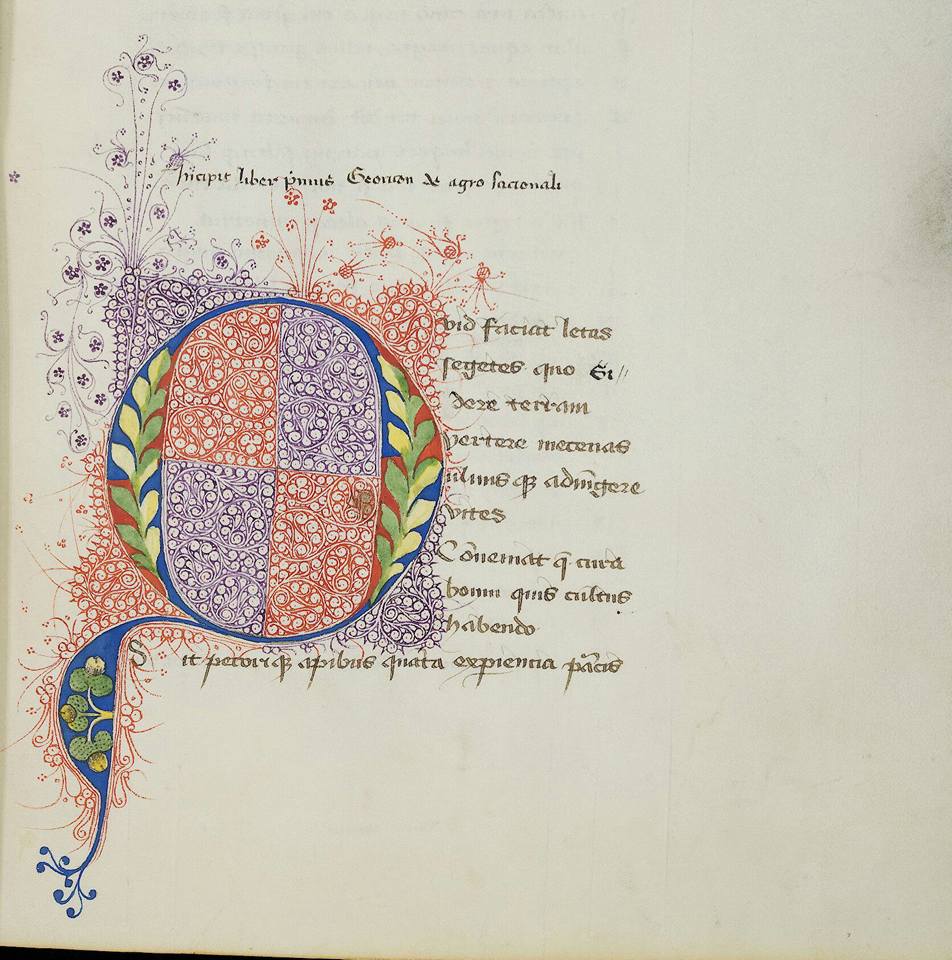 Incipit liber p̄mus Georicon de agro sacionali
Qvid faciat letas
segetes quo Si//
dere terram
vertere mecenas
ulmis qȝ adiūgere
vites
Cōueniat q̄ cura
boum quis cultus
habendo
Sit pecoriqȝ apibus quāta expiencia pācis